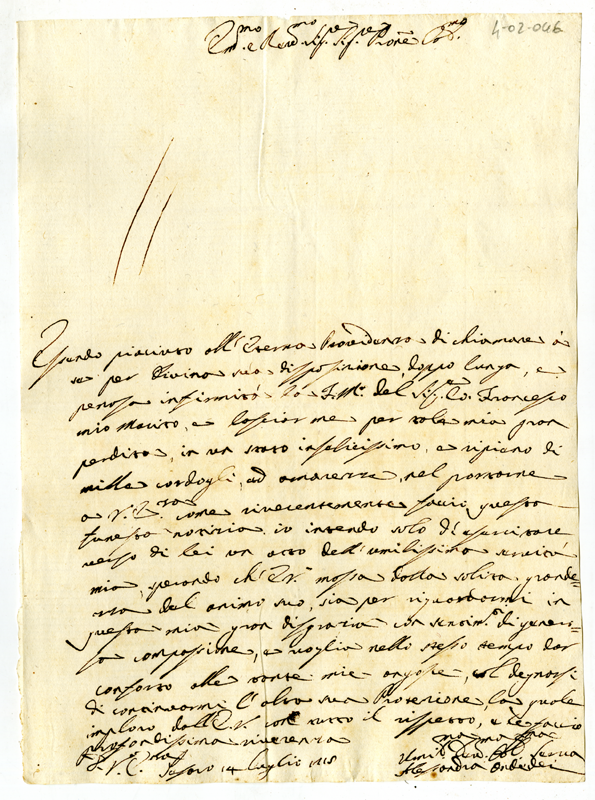 4-02-046
Em.mo e Rev.mo Sig.re Sig.re Prone Col.mo
Essendo piaciuto all'Eterna Providenza di chiamare à
se per divina sua disposizione, doppo lunga, e
penosa infirmità la f. M. del Sig.r Co. Francesco
mio Marito, e lasciarme per tale mia gran
perdita, in un stato infelicissimo, e ripieno di
mille cordogli, ed amarezze, nel portarne
a V. Em.za come riverentemente faccio questa
funesta notizia io intendo solo di esercitare
verso di lei un atto dell'umilissima servitù
mia, sperando ch'E.V. mossa dalla solita grande-
zza del animo suo, sia per riguardarmi in
questa mia gran disgrazia con sentim.ti di genero-
sa compassione, e voglia nello stesso tempo dar
conforto alle tante mie angosie, col degnarsi
di continuarmi l'alta sua Protezione, la quale
imploro dall'E.V. con tutto il rispetto, e le faccio
profondissima riverenza
D. V. E.
Pesaro 14 luglio
Umil.ma Dev.ma Serva
Alessandra Ondedei